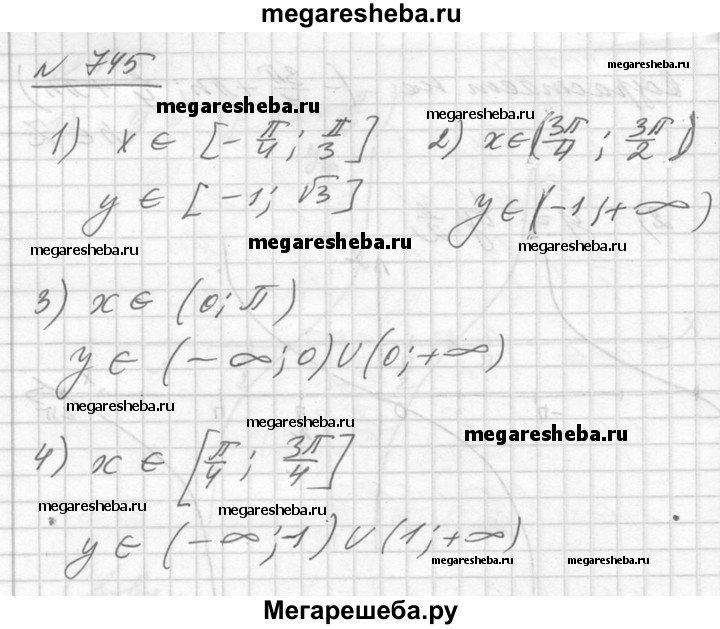 megaresheba.ru
N 745
megaresheba.ru
megaresheba.ru
megaresheba.ru
1) x ∈ [-π/4; π/3] 2) x ∈ (3π/4; 3π/2)
y ∈ [-1; √3] y ∈ (-1; +∞)
megaresheba.ru
megaresheba.ru
megaresheba.ru
3) x ∈ (0; π)
y ∈ (-∞; 0) ∪ (0; +∞)
megaresheba.ru
megaresheba.ru
megaresheba.ru
4) x ∈ [π/4; 3π/4]
megaresheba.ru
megaresheba.ru
y ∈ (-∞; -1) ∪ (1; +∞)
megaresheba.ru
megaresheba.ru
Мегарешеба.ру